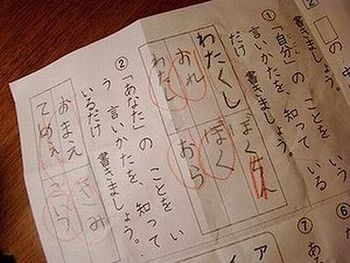 の中
書きましょう。
①「自分」の ことを いう
言いかたを、知って いる
だけ 書きましょう。
わたくし
ぼくちん
おれ
ぼく
わたし
おら
②「あなた」の ことを い
う 言いかたを、知って
いるだけ 書きましょう。
おまえ
きみ
てめえ
こら
⑥
⑦
ア